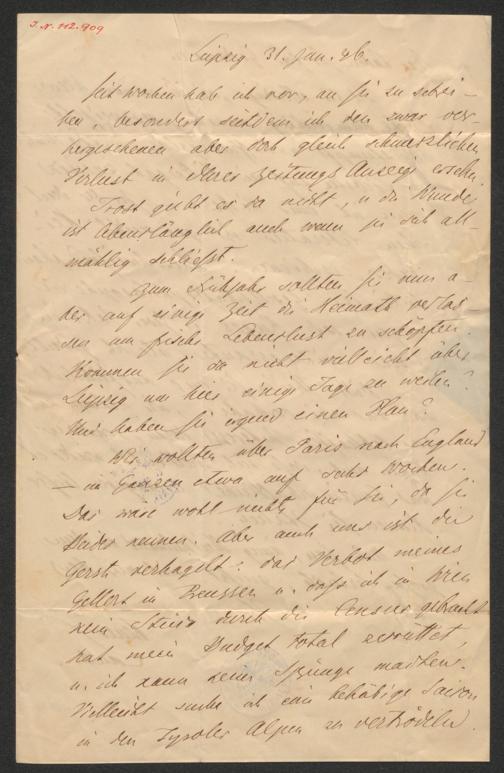 J.N. 112.909
Leipzig 31. Jan. 46.
Seit Wochen hab ich vor, an Sie zu schrei-
ben, besonders seitdem ich den zwar vor-
hergesehenen aber doch gleich schmerzlichen
Verlust in Ihrer Zeitungs Anzeige ersehen.
Trost giebt es da nicht, u die Wunde
ist lebenslänglich auch wenn sie sich all-
mählig schließt.
Zum Frühjahr sollten Sie nun a-
ber auf einige Zeit die Heimath verlas
sen um frische Lebenslust zu schöpfen.
Kommen Sie da nicht vielleicht über
Leipzig um hier einige Tage zu weilen?
Und haben Sie irgend einen Plan?
Wir wollten über Paris nach England
– im Ganzen etwa auf sechs Wochen.
Das wäre wohl nichts für Sie, da Sie
Beides kennen. Aber auch uns ist die
Gerste verhagelt: das Verbot meines
in Preussen u. daß ich in Wien
kein Stück durch die Censur gebracht
hat mein Budget total zerrüttet,
u. ich kann keine Sprünge machen.
Vielleicht suche ich eine behäbige Saison
in den Tyroler Alpen zu vertrödeln.